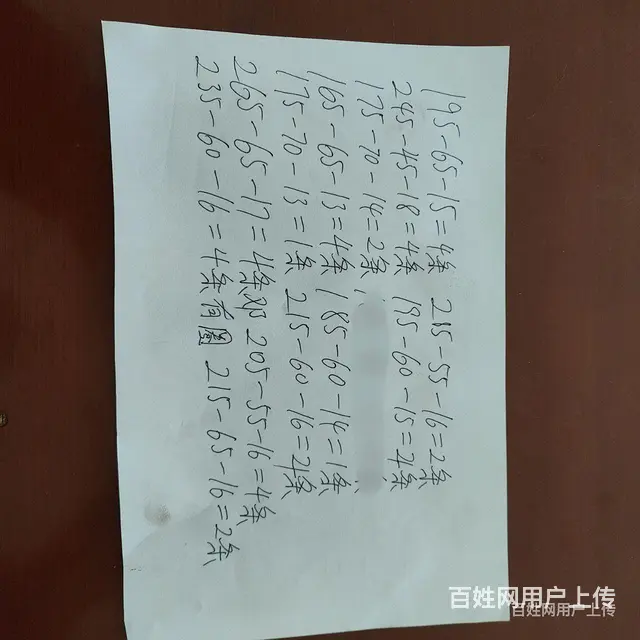 195-65-15=4条 215-55-16=2条
245-45-18=4条 195-60-15=2条
175-70-14=2条
165-65-13=4条 185-60-14=1条
175-70-13=1条 215-60-16=2条
265-65-17=4条邓 205-55-16=4条
235-60-16=4条有圈 215-65-16=2条
百姓网用户上传
百姓网用户上传